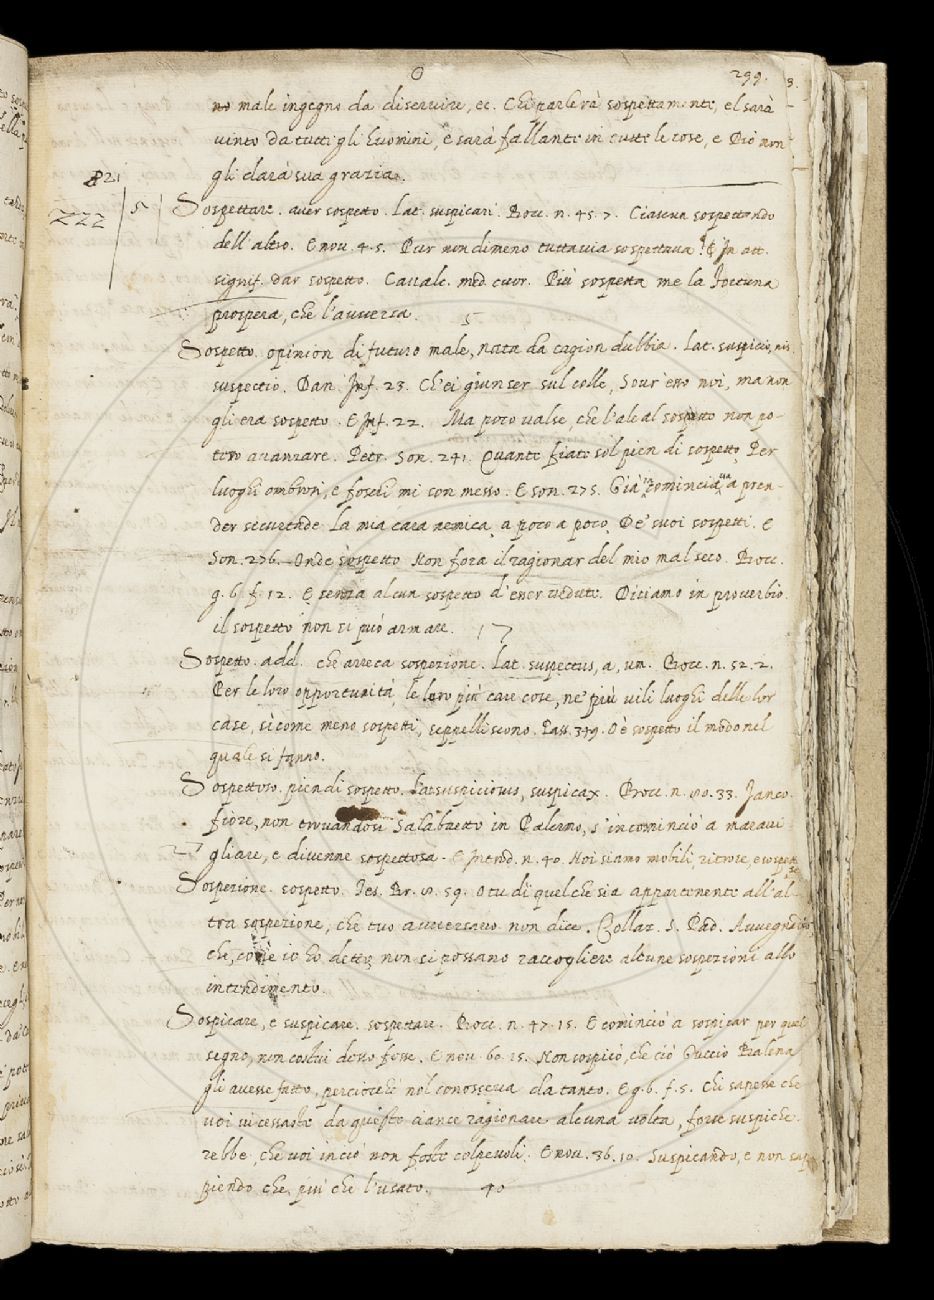 O
299.
no male ingegno da diservire, ec. Chi parlerà sospettamente, el sarà
vinto da tutti gli huomini, e sarà fallante in tutte le cose, e Dio non
gli darà sua grazia.
221
222
5
Sospettare. aver sospetto. Lat. suspicari. Bocc. n. 45. 7. Ciascun sospettando
dell'altro. E nov. 4. 5. Pur nondimeno tuttavia sospettava. E In att.
signif. dar sospetto. Cavalc. med. cuor. Più sospetta me la fortuna
prospera, che l'avversa.
5
Sospetto. opinion di futuro male, nata da cagion dubbia. Lat. suspicio, nis
suspectio. Dan. Inf. 23. Ch'ei giunser sul colle, Sovr'esso noi, ma non
gli era sospetto. E Inf. 22. Ma poco valse, che l'ale al sospetto non po-
tero avanzare. Petr. Son. 241. Quante fiate sol pien di sospetto Per
luoghi ombrosi, e foschi mi son messo. E son. 275. Già incominciava a pren-
der securtade La mia cara nemica a poco a poco De' suoi sospetti. E
Son. 276. Onde sospetto Non fora il ragionar del mio mal seco. Bocc.
g. 6. f. 12. E senza alcun sospetto d'esser vedute. Diciamo in proverbio
il sospetto non si può armare.
17
Sospetto. add. che arreca sospezione. Lat. suspectus, a, um. Bocc. n. 52. 2.
Per le loro opportunità, le loro più care cose, ne' più vili luoghi delle lor
case, sì come meno sospetti, seppelliscono. Pass. 349. O è sospetto il modo nel
quale si fanno.
Sospettoso. pien di sospetto. Lat. suspiciosus, suspicax. Bocc. n. 80. 33. Janco-
fiore, non trovandosi Salabaetto in Palermo, s'incominciò a maravi-
gliare, e divenne sospettosa. E Introd. n. 40. Noi siamo mobili, ritrose, e sospettose
Sospezione. sospetto. Tes. Br. 8. 59. O tu di quel che sia appartenente all'al-
tra sospezione, che tuo avversario non dice. Collaz. S. Pad. Avvegna
che, come io ho detto, non si possano raccogliere alcune sospezioni allo
intendimento.
Sospicare, e suspicare. sospettare. Bocc. n. 47. 15. E cominciò a sospicar per quel
segno, non costui desso fosse. E nov. 60. 15. Non sospicò, che ciò Guccio Balena
gli avesse fatto, perciocchè nol conosceva da tanto. E g. 6. f. 5. Chi sapesse che
voi vi cessaste da queste ciance ragionare alcuna volta, forse suspiche-
rebbe, che voi in ciò non foste colpevoli. E nov. 36. 10. Suspicando, e non sap-
piendo che, più che l'usato.
40